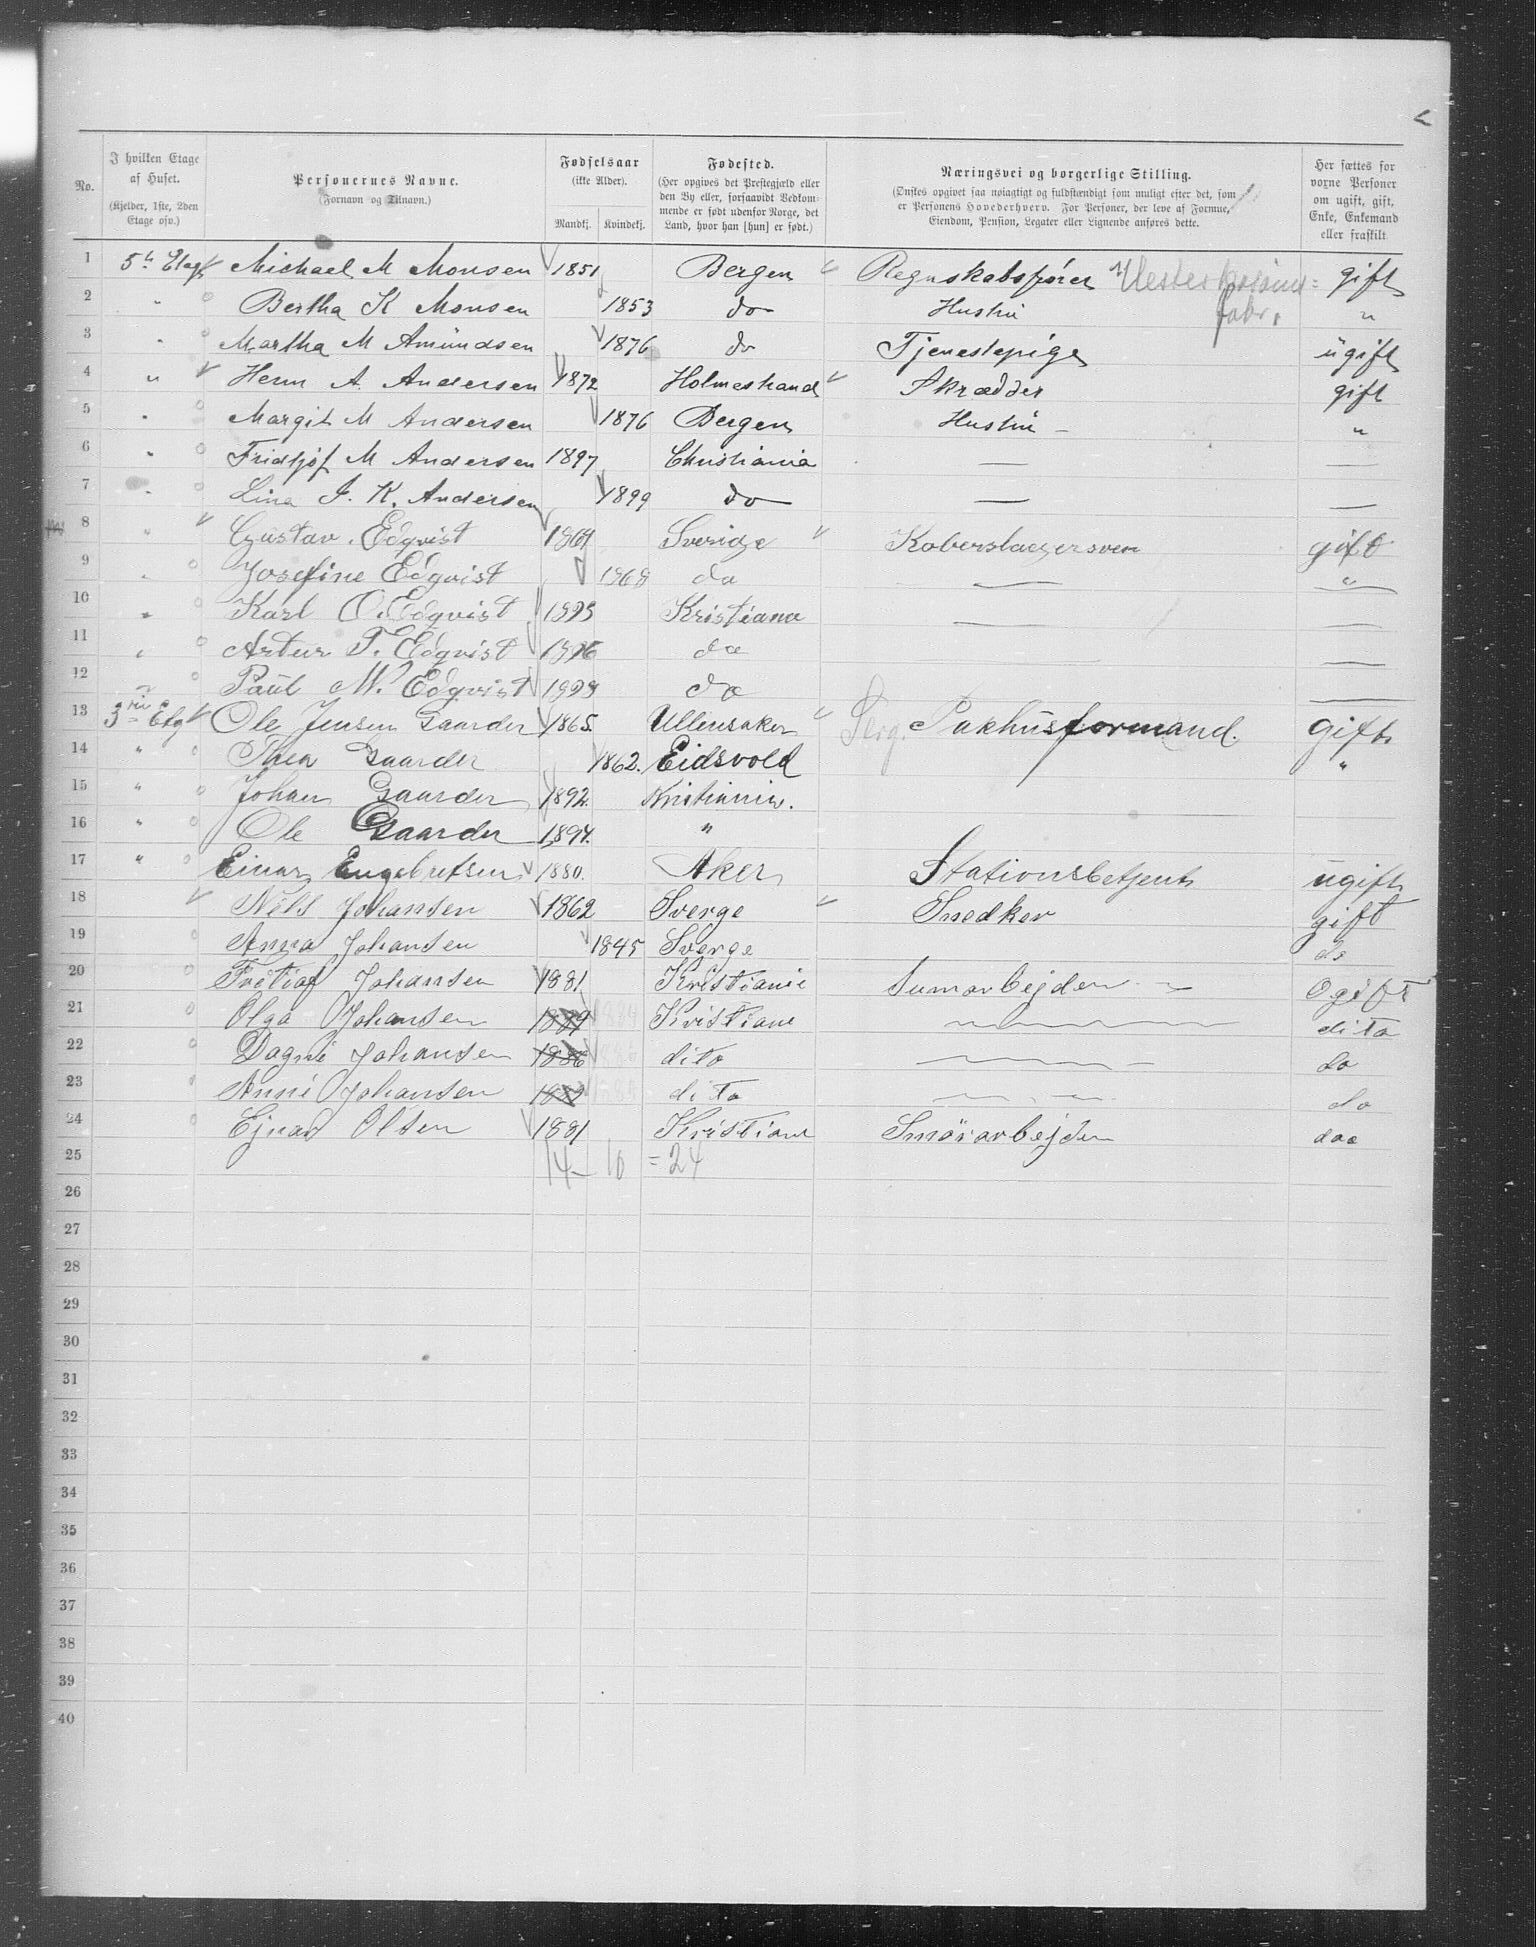 No.
I hvilken Etage af Huset. (Kjelder, 1ste, 2den Etage osv.)
Personernes Navne. (Fornavn og Tilnavn.)
Fødselsaar (ikke Alder). Mandkj. Kvindekj.
Fødested. (Her opgives det Prestegjæld eller den By eller, forsaavidt Vedkommende er født udenfor Norge, det Land, hvor han [hun] er født.)
Næringsvei og borgerlige Stilling. (Ønskes opgivet saa nøiagtigt og fuldstændigt som muligt efter det, som er Personens Hovederhverv. For Personer, der leve af Formue, Eiendom, Pension, Legater eller Lignende anføres dette.
Her sættes for voxne Personer om ugift, gift, Enke, Enkemand eller fraskilt
1 5te Etage Michael M Monsen 1851 Bergen Regnskabsfører gift
2 " Bertha K Monsen 1853 do Hustru "
3 " Martha M Amundsen 1876 do Tjenestepige ugift
4 " Herm A. Andersen 1872 Holmestrand Skrædder gift
5 " Margit M Andersen 1876 Bergen Hustru "
6 " Fridtjof M Andersen 1897 Christiania —
7 " Lina J. K. Andersen 1899 do —
8 " Gustav Edqvist 1864 Sverige Koberslagersven gift
9 " Josefine Edqvist 1868 da — "
10 " Karl O. Edqvist 1893 Kristiana —
11 " Artur T. Edqvist 1896 da —
12 " Paul M. Edqvist 1899 da —
13 3die Etg Ole Jensen Gaarder 1865. Ullensaker Pakhusformand. gift
14 " Thea Gaarder 1862. Eidsvold "
15 " Johan Gaarder 1892. Kristiania.
16 " Ole Gaarder 1894. "
17 " Einar Engebretsen 1880. Aker Stationsbetjent ugift
18 Nels Johansen 1862 Sverge Snedker gift
19 Anna Johansen 1845 Sverge do
20 Fritiof Johansen 1881 Kristianie Sumarbejder Ogift
21 Olga Johansen 1884 Kristiane dito
22 Dagni Johansen 1886 dito do
23 Anni Johansen dito do
24 Ejnar Olsen 1881 Kristiane Smörarbejder
25 14 – 10 = 24
26
27
28
29
30
31
32
33
34
35
36
37
38
39
40